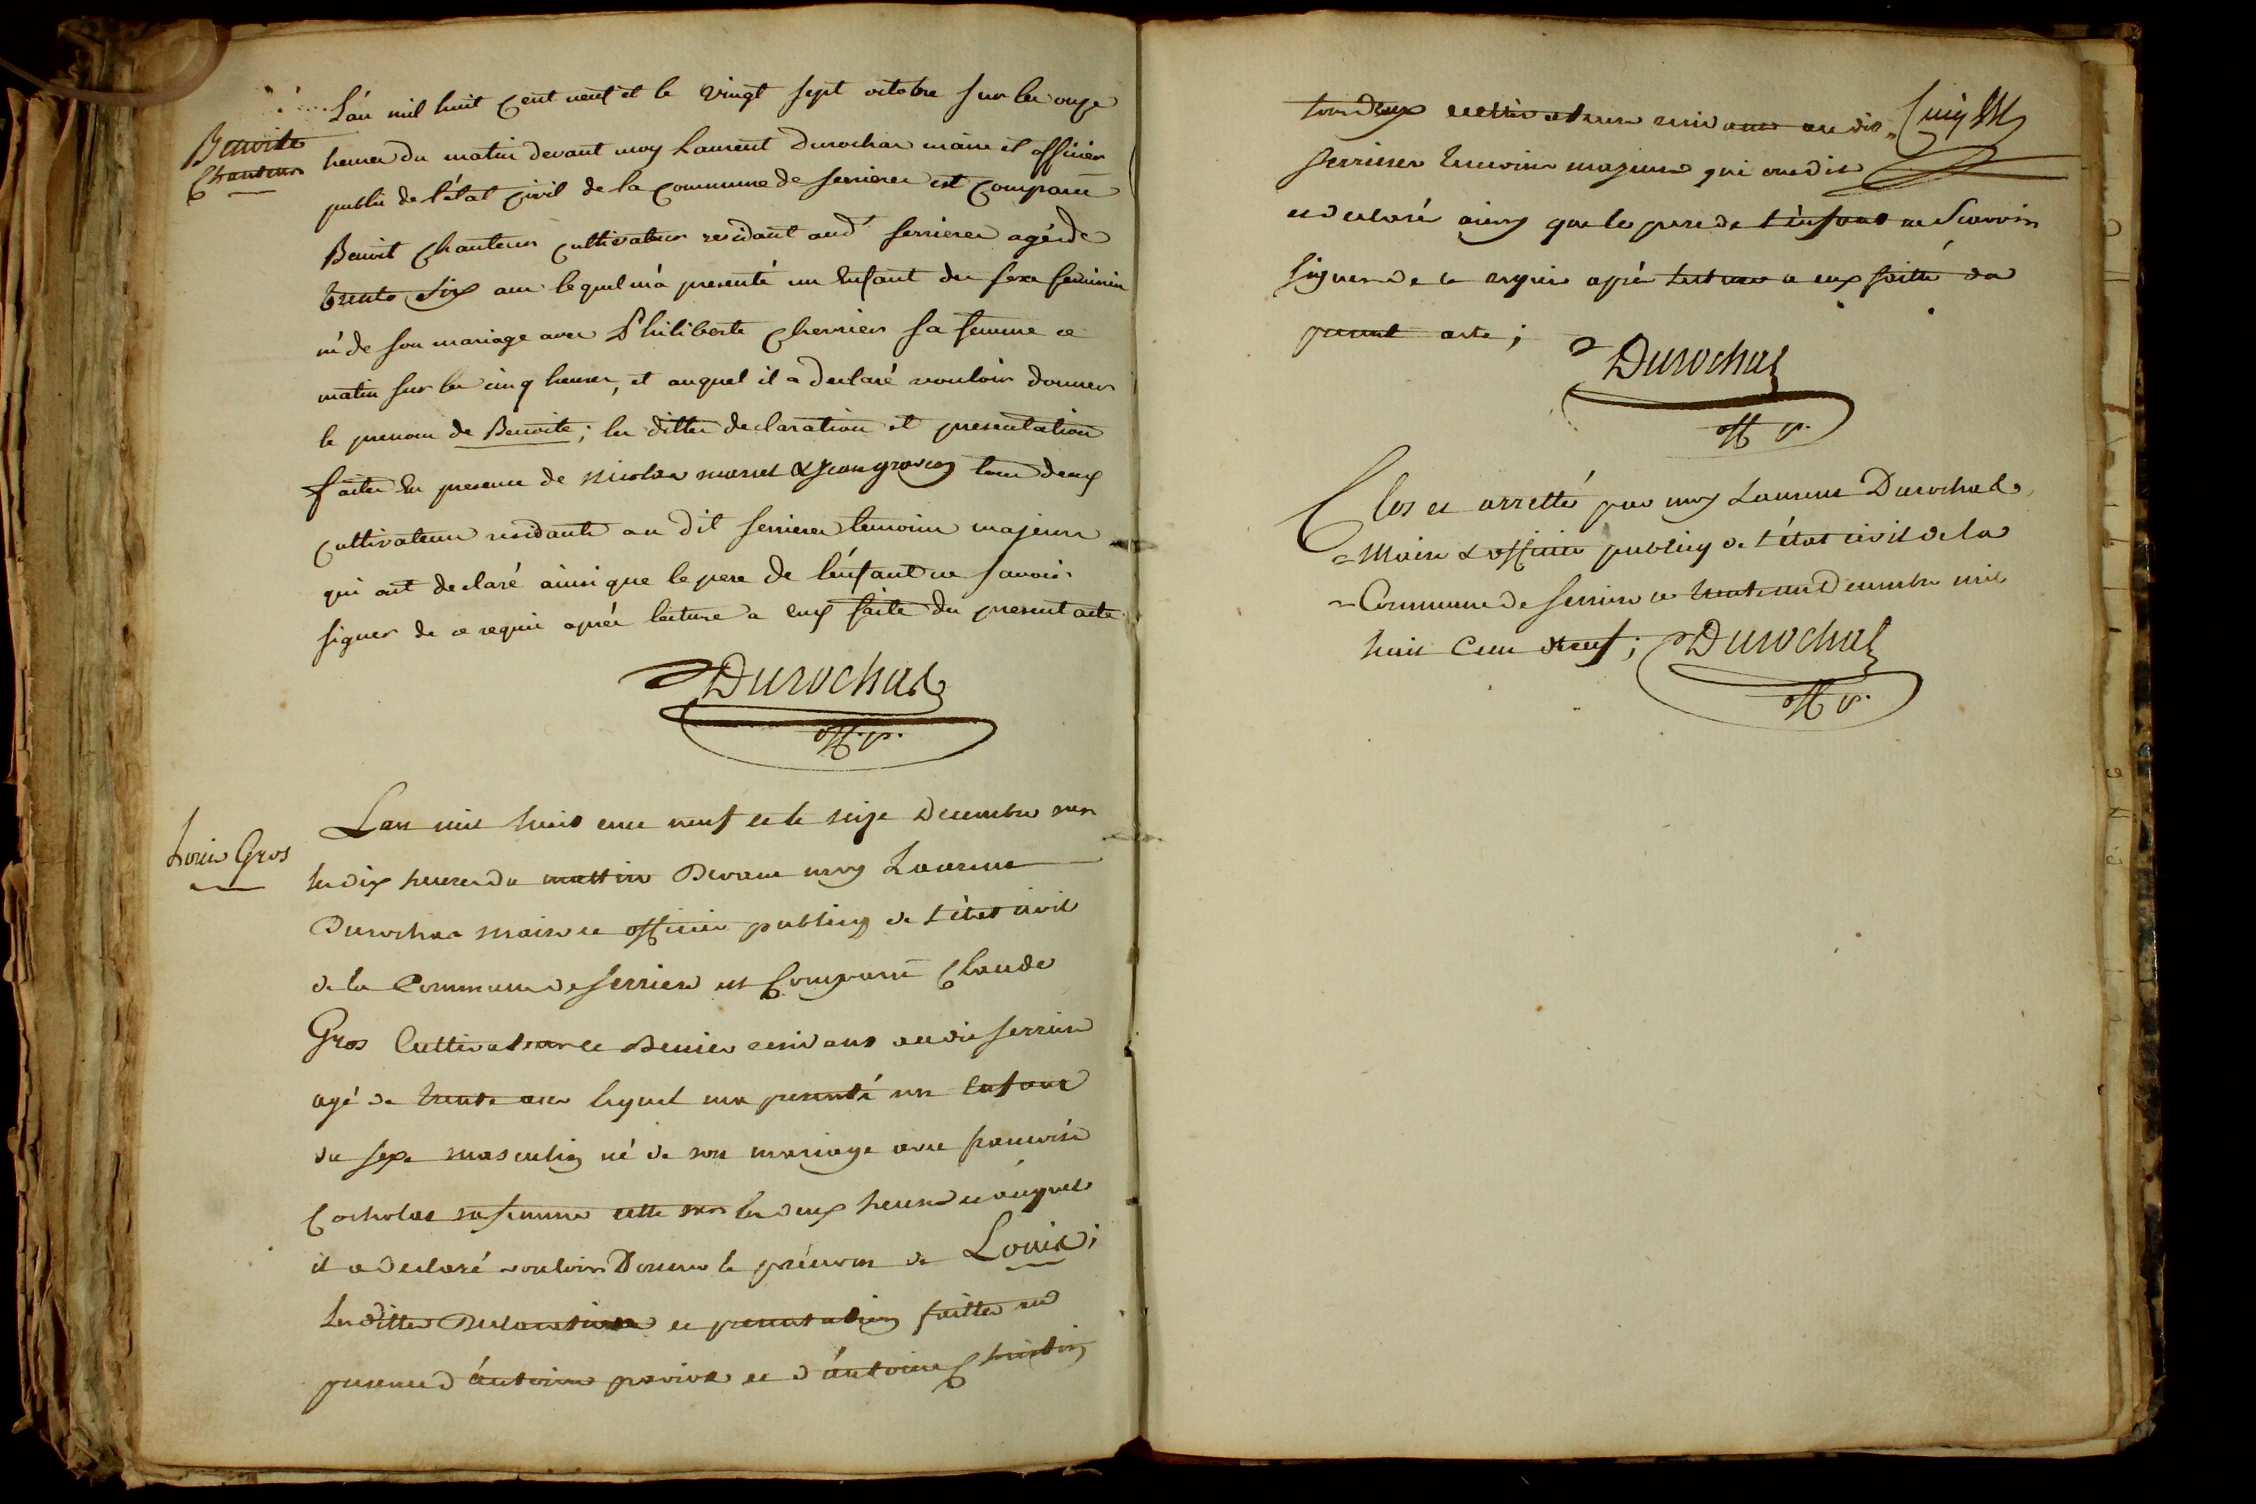 L'an mil huit Cent neuf et le vingt sept octobre sur les onze
Benoite
Chanteur
heures du matin devant moy Laurent Durochas maire et officier
public de l'état Civil de la Commune de serrieres est Comparu
Benoit Chanteur Cultivateur residant aud.t serrieres agé de
trente six ans lequel m'a presenté un Enfant du sexe feminin
né de son mariage avec Philiberte Cherrier sa femme ce
matin sur les cinq heures, et auquel il a declaré vouloir donner
le prenom de Benoite; les dittes declaration et presentation
faites En presence de Nicolas & Jean tous deux
Cultivateurs residants au dit serrieres temoins majeurs
qui ont declaré ainsi que le pere de l'enfant ne savoir
signer de ce requis après lecture a eux faite du present acte
Durochas
off. p.
Louis Gros
Lan mil huit cent neuf et le seize Decembre sur
les dix heures du mattin Devant moy Laurent
Durochas Maire et officier publicq de l'état civil
de la Commune de serriere est Comparu Claude
Gros Cultivateur et residant au dit serriere
agé de trente ans lequel ma presenté un Enfant
du sexe masculin né de son mariage avec francoise
Cocholat sa femme cette sur les deux heures et auquel
il a declaré vouloir Donner le prénom de Louis;
Les dittes Declaration et presentation faittes en
presence d'antoine et d'antoine
tous Deux cultivateurs residants au dit
serrieres temoins majeurs qui ont dit
et declaré ainsy que le pere de l'enfant ne Scavoir
signer de ce requis après lecture a eux faitte du
present acte;
Durochas
off p.
Clos et arretté par moy Laurent Durochas
Maire & officier publicq de l'état civil de la
Commune de serriere ce trente un Decembre mil
huit Cent neuf; Durochas
off p.